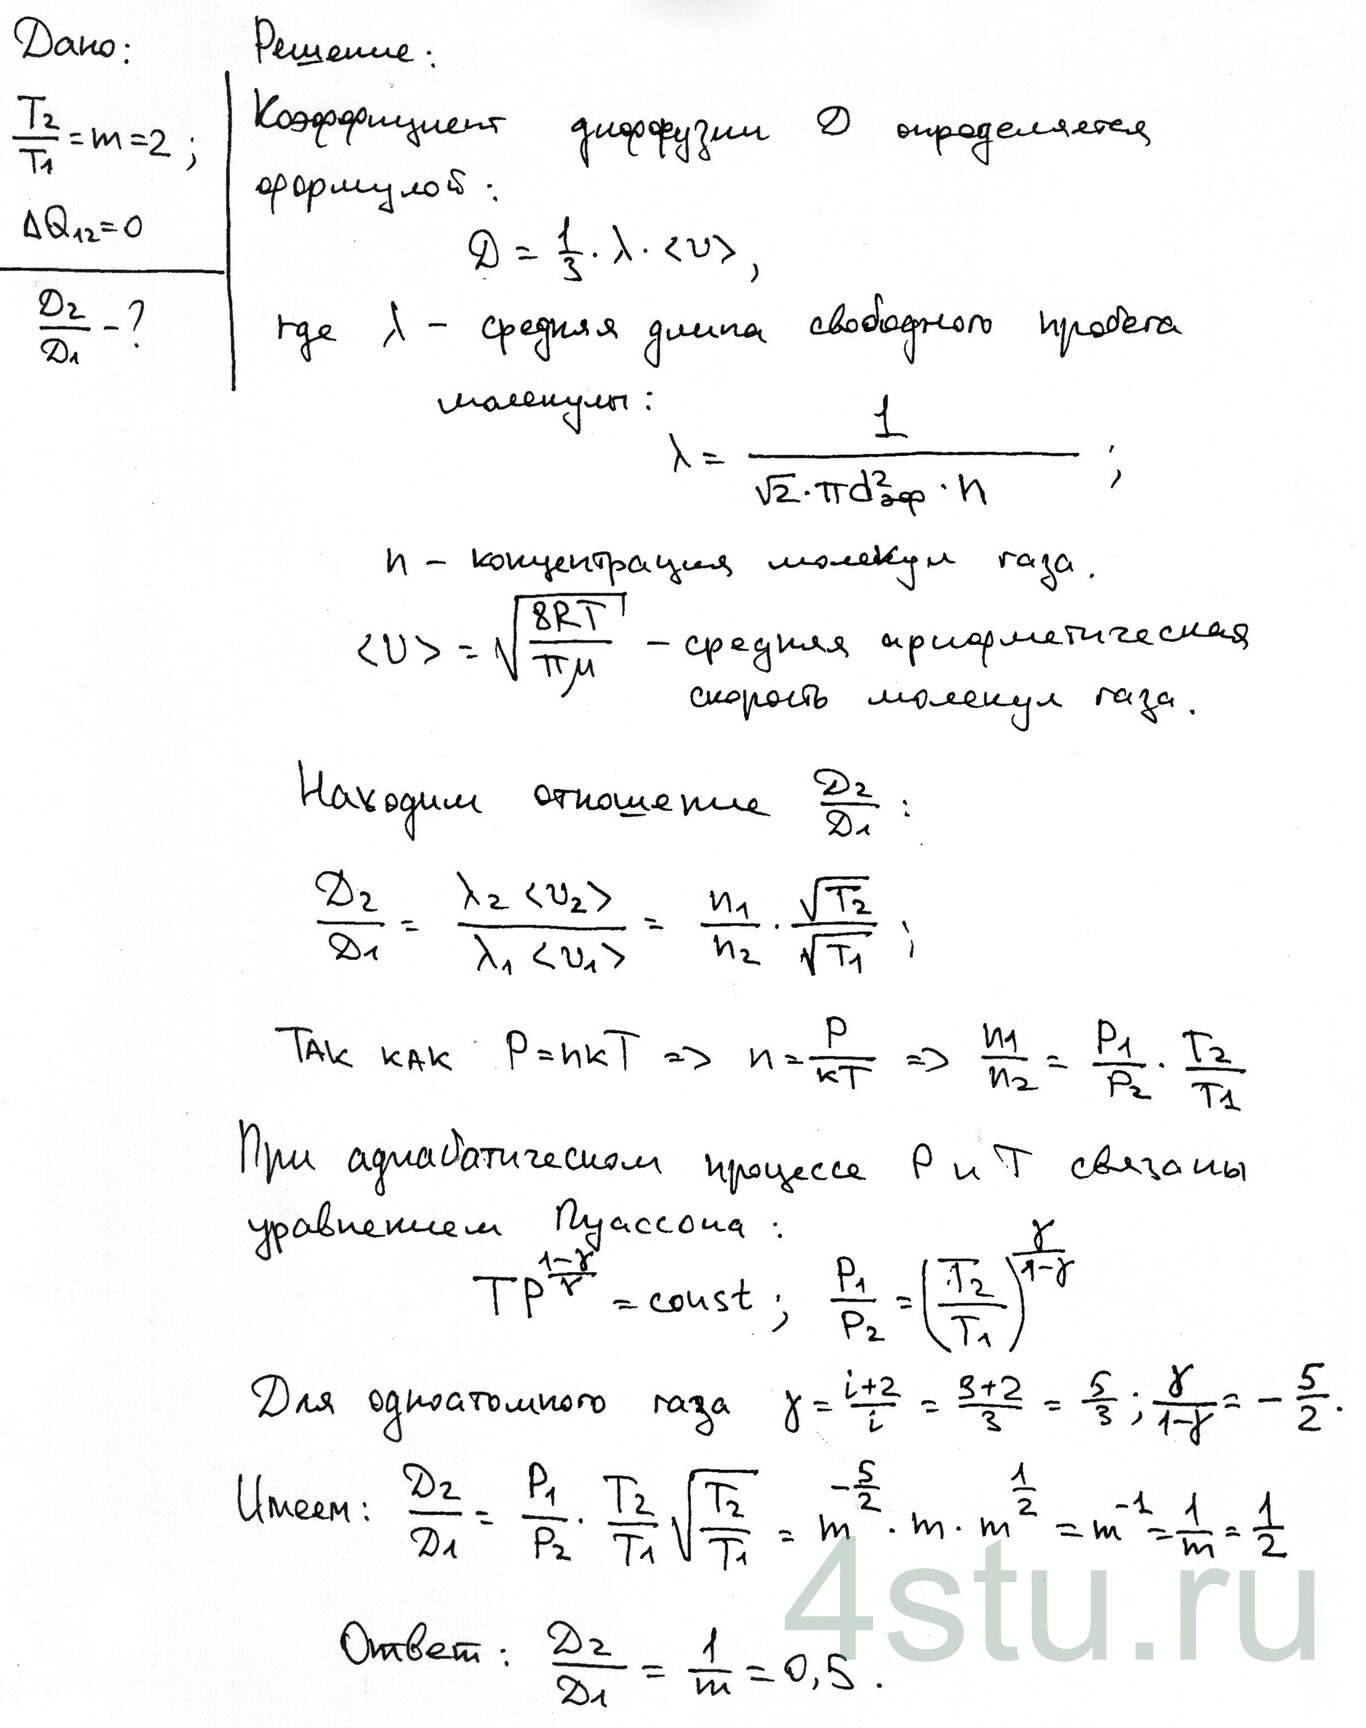 Дано:
T2/T1 = m = 2;
ΔQ12 = 0
D2/D1 - ?
Решение:
Коэффициент диффузии D определяется
формулой:
D = 1/3 · λ · <υ>,
где λ – средняя длина свободного пробега
молекулы:
λ = 1/(√2 · πd²эф · n);
n – концентрация молекул газа.
<υ> = √(8RT/πμ) – средняя арифметическая
скорость молекул газа.
Находим отношение D2/D1:
D2/D1 = λ2<υ2>/λ1<υ1> = n1/n2 · √T2/√T1;
Так как P = nкT => n = P/кT => n1/n2 = P1/P2 · T2/T1
При адиабатическом процессе P и T связаны
уравнением Пуассона:
TP^((1-γ)/γ) = const; P1/P2 = (T2/T1)^(γ/(1-γ))
Для одноатомного газа γ = (i+2)/i = (3+2)/3 = 5/3; γ/(1-γ) = -5/2.
Имеем: D2/D1 = P1/P2 · T2/T1 √(T2/T1) = m^(-5/2) · m · m^(1/2) = m^(-1) = 1/m = 1/2
Ответ: D2/D1 = 1/m = 0,5.
4stu.ru